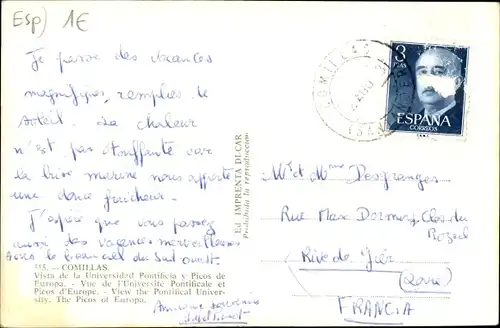 Esp) 1€
Je passe des vacances
magnifiques, remplies de
soleil. La chaleur
n'est pas étouffante car
la brise marine nous apporte
une douce fraîcheur.
J'espère que vous passez
aussi des vacances merveilleuses
sous le beau ciel du Sud Ouest.
315. - COMILLAS.
Vista de la Universidad Pontificia y Picos de
Europa. - Vue de l'Université Pontificale et
Picos d'Europe. - View the Pontifical Univer-
sity. The Picos of Europa.
Ed. IMPRENTA DE CAR
Prohibida la reproducción
COMILLAS
3
PTAS
ESPAÑA
CORREOS
Mr et Mme Desgranges
Rue Marx Dormoy, Clos du
Rozeil
Rive de Gier
(Loire)
FRANCIA